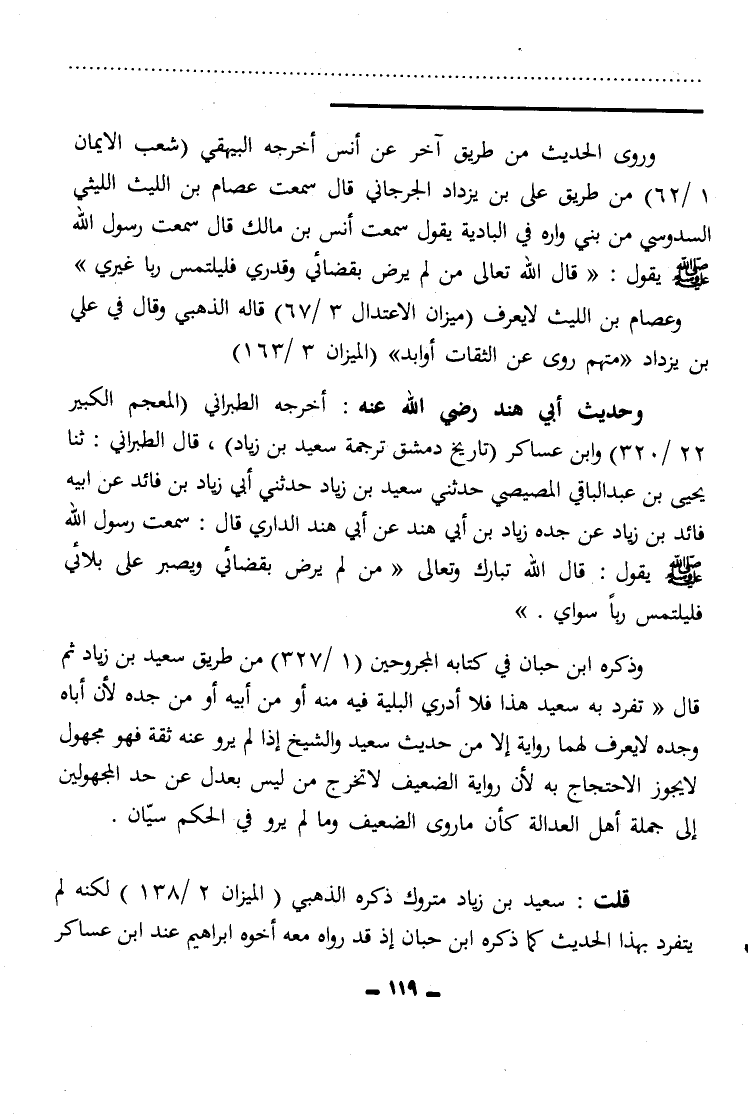 وروى الحديث من طريق آخر عن أنس أخرجه البيهقي (شعب الايمان
١ /٦٢) من طريق على بن يزداد الجرجاني قال سمعت عصام بن الليث الليثي
السدوسي من بني واره في البادية يقول سمعت أنس بن مالك قال سمعت رسول الله
ﷺ يقول : « قال الله تعالى من لم يرض بقضائي وقدري فليلتمس ربا غيري »
وعصام بن الليث لايعرف (ميزان الاعتدال ٣ /٦٧) قاله الذهبي وقال في علي
بن يزداد «متهم روى عن الثقات أوابد» (الميزان ٣ /١٦٣)
وحديث أبي هند رضي الله عنه : أخرجه الطبراني (المعجم الكبير
٢٢ /٣٢٠) وابن عساكر (تاريخ دمشق ترجمة سعيد بن زياد) ، قال الطبراني : ثنا
يحيى بن عبدالباقي المصيصي حدثني سعيد بن زياد حدثني أبي زياد بن فائد عن ابيه
فائد بن زياد عن جده زياد بن أبي هند عن أبي هند الداري قال : سمعت رسول الله
ﷺ يقول : قال الله تبارك وتعالى « من لم يرض بقضائي ويصبر على بلائي
فليلتمس رباً سواي . »
وذكره ابن حبان في كتابه المجروحين (١ /٣٢٧) من طريق سعيد بن زياد ثم
قال « تفرد به سعيد هذا فلا أدري البلية فيه منه أو من أبيه أو من جده لأن أباه
وجده لايعرف لهما رواية إلا من حديث سعيد والشيخ إذا لم يرو عنه ثقة فهو مجهول
لايجوز الاحتجاج به لأن رواية الضعيف لاتخرج من ليس بعدل عن حد المجهولين
إلى جملة أهل العدالة كأن ماروى الضعيف وما لم يرو في الحكم سيّان .
قلت : سعيد بن زياد متروك ذكره الذهبي ( الميزان ٢ /١٣٨ ) لكنه لم
يتفرد بهذا الحديث كما ذكره ابن حبان إذ قد رواه معه أخوه ابراهيم عند ابن عساكر
ـ ١١٩ ـ